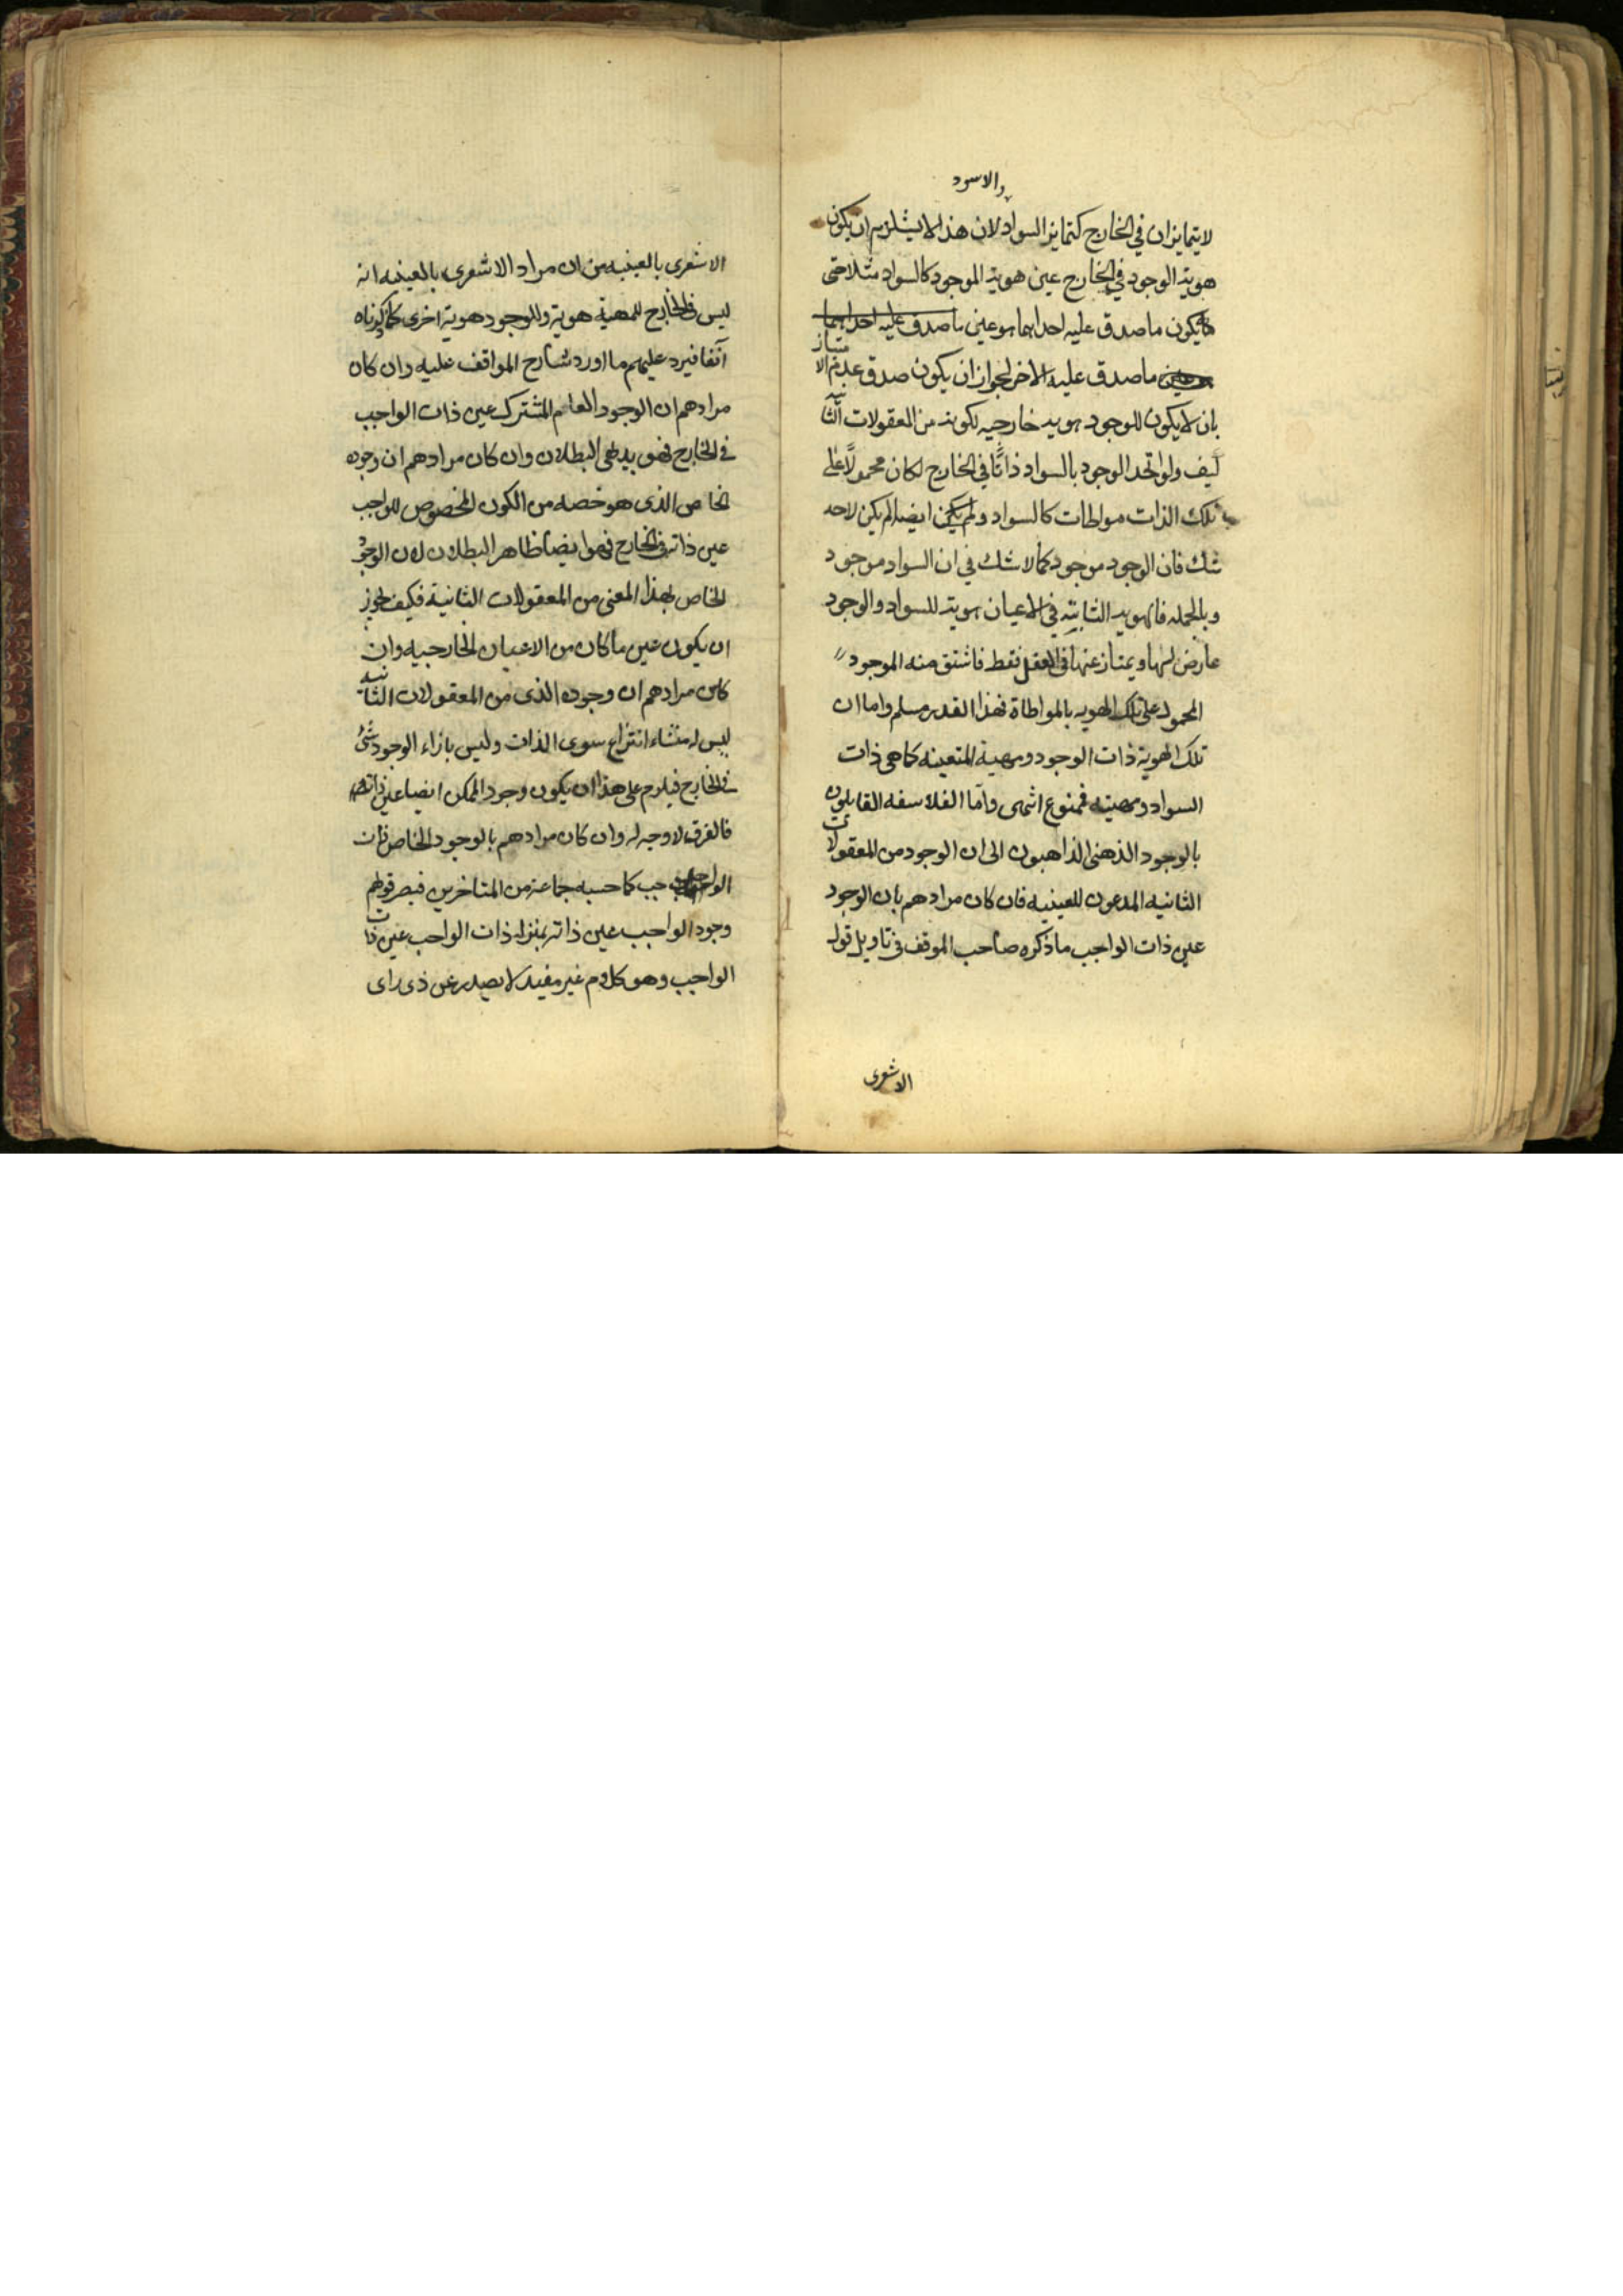 والاسود
لا يتمايزان في الخارج كتمايز السواد لان هذا لا يستلزم ان يكون
هوية الوجود في الخارج عين هوية الموجود كالسواد مثلا حتى
يكون ما صدق عليه احداهما هو عين ما صدق عليه احداهما
هو عين ما صدق عليه الاخر لجواز ان يكون صدق عدم الامتياز
بان لا يكون للوجود هوية خارجيه لكونه من المعقولات الثانية
كيف ولو اتحد الوجود بالسواد ذاتًا في الخارج لكان محمولًا على
تلك الذات مواطات كالسواد و لم يكن ايضا لم يكن لاحد
شك فان الوجود موجود كما لا شك في ان السواد موجود
وبالجمله فالهوية الثابتة في الاعيان هوية للسواد والوجود
عارض لها ويمتاز عنها في العقل فقط فاشتق منه الموجود
المحمول على تلك الهويه بالمواطاة فهذا القدر مسلم واما ان
تلك الهوية ذات الوجود ومهية المتعينه كما هي ذات
السواد ومهيته فممنوع انتهى وامّا الفلاسفه القايلون
بالوجود الذهني الذاهبون الى ان الوجود من المعقولات
الثانيه المدعون للعينيه فان كان مرادهم بان الوجود
عين ذات الواجب ما ذكره صاحب الموقف في تاويل قول
الاشعرى
الاشعرى بالعينيه من ان مراد الاشعرى بالعينيه انه
ليس في الخارج للمهية هوية وللوجود هوية اخرى كما ذكرناه
آنفا فيرد عليهم ما اورد شارح المواقف عليه وان كان
مرادهم ان الوجود العام المشترك عين ذات الواجب
في الخارج فهو بديهى البطلان وان كان مرادهم ان وجوده
الخاص الذى هو حصه من الكون المخصوص للواجب
عين ذاته في الخارج فهو ايضا ظاهر البطلان لان الوجود
الخاص بهذا المعنى من المعقولات الثانية فكيف يجوز
ان يكون عين ما كان من الاعيان الخارجيه وان
كان مرادهم ان وجوده الذى من المعقولات الثانيه
ليس له منشاء انتزاع سوى الذات وليس بازاء الوجود شئ
في الخارج فيلزم على هذا ان يكون وجود الممكن ايضا عين ذاته
فالفرق لا وجه له وان كان مرادهم بالوجود الخاص ذات
الواجب كما حسبه جماعة من المتاخرين فيصر قولهم
وجود الواجب عين ذاته بمنزله ذات الواجب عين ذات
الواجب وهو كلام غير مفيد لا يصدر عن ذى راى